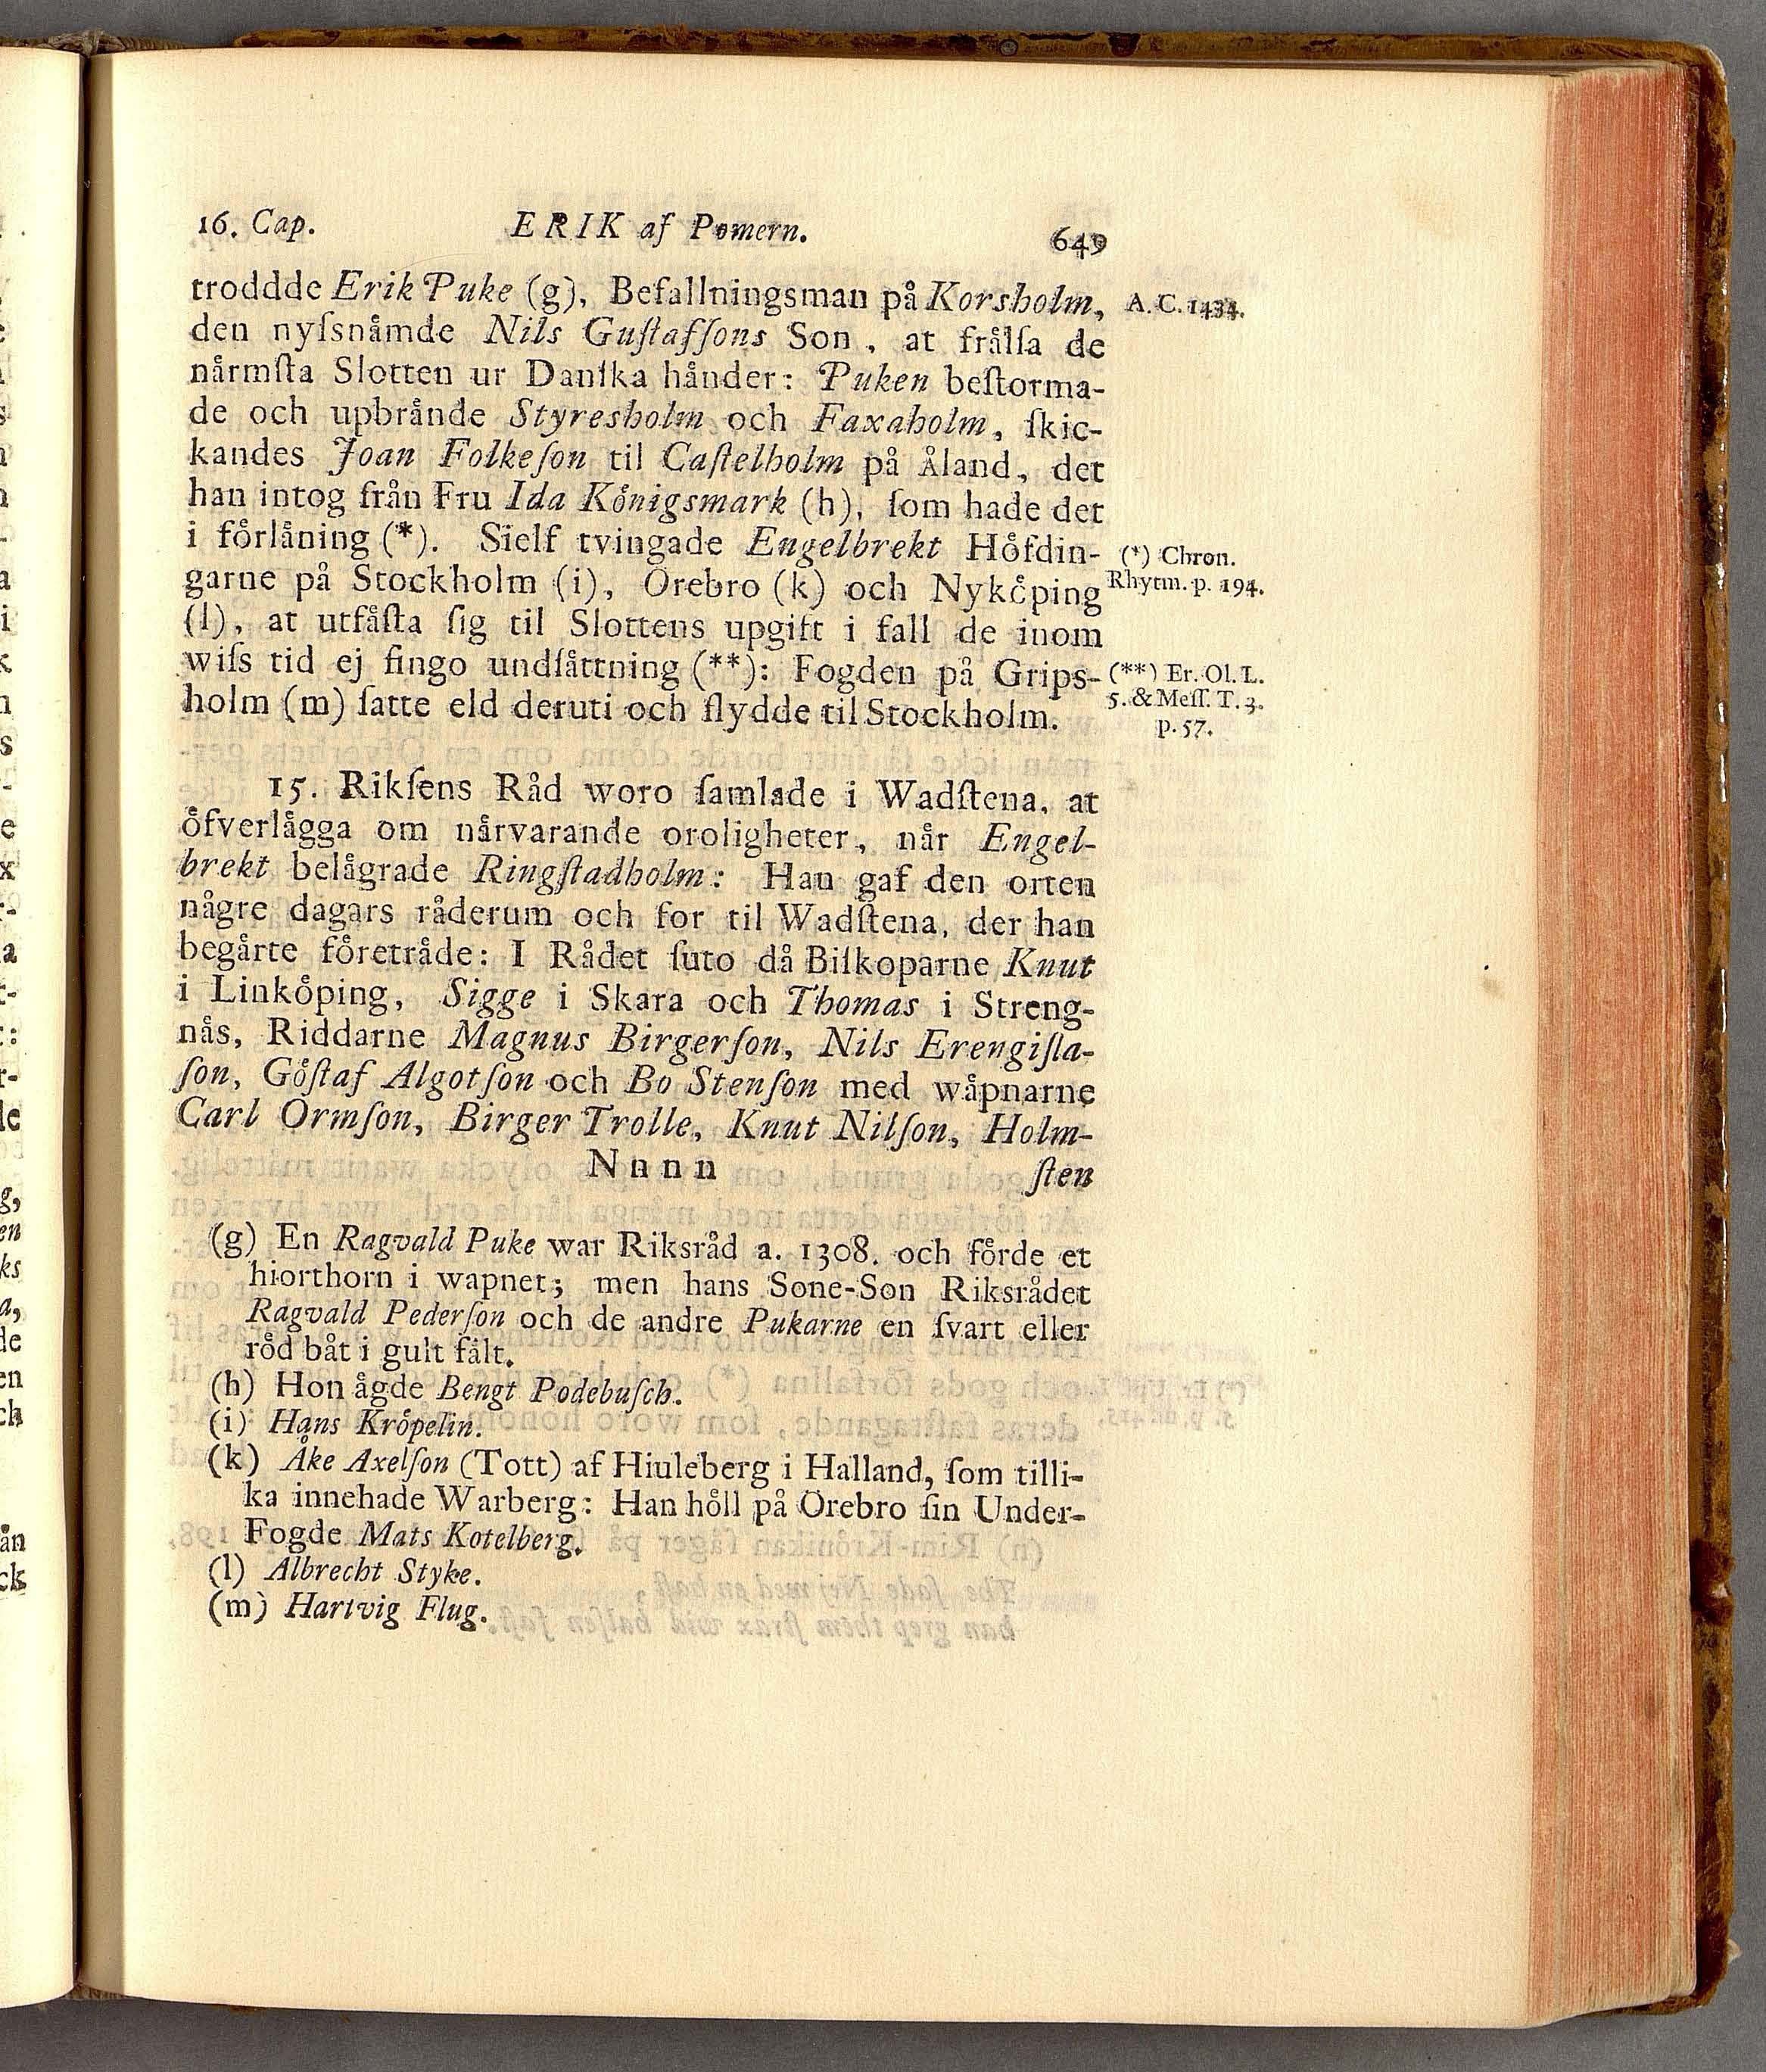 16. Cap. ERIK af Pomern. 649
troddde Erik Puke (g), Befallningsman på Korsholm, A. C. 1434.
den nyſsnåmde Nils Guſtafſons Son, at frålſa de
nårmſta Slotten ur Danſka hånder: Puken beſtorma-
de och upbrånde Styresholm och Faxaholm, ſkic-
kandes Joan Folkeſon til Caſtelholm på Åland, det
han intog från Fru Ida Kőnigsmark (h), ſom hade det
i főrlåning (*). Sielf tvingade Engelbrekt Hőfdin- (*) Chron.
garne på Stockholm (i), Orebro (k) och Nykőping Rhytm. p. 194.
(l), at utfåſta ſig til Slottens upgift i fall de inom
wiſs tid ej fingo undſåttning (**): Fogden på Grips- (**) Er. Ol. L.
holm (m) ſatte eld deruti och flydde til Stockholm. 5. & Meſſ. T. 3.
p. 57.
15. Rikſens Råd woro ſamlade i Wadſtena, at
őfverlågga om nårvarande oroligheter, når Engel-
brekt belågrade Ringſtadholm: Han gaf den orten
någre dagars råderum och for til Wadſtena, der han
begårte főretråde: I Rådet ſuto då Biſkoparne Knut
i Linkőping, Sigge i Skara och Thomas i Streng-
nås, Riddarne Magnus Birgerſon, Nils Erengiſla-
ſon, Gőſtaf Algotſon och Bo Stenſon med wåpnarne
Carl Ormſon, Birger Trolle, Knut Nilſon, Holm-
Nnnn ſten
(g) En Ragvald Puke war Riksråd a. 1308. och főrde et
hiorthorn i wapnet; men hans Sone-Son Riksrådet
Ragvald Pederſon och de andre Pukarne en ſvart eller
rőd båt i gult fålt.
(h) Hon ågde Bengt Podebuſch.
(i) Hans Krőpelin.
(k) Åke Axelſon (Tott) af Hiuleberg i Halland, ſom tilli-
ka innehade Warberg: Han hőll på Orebro ſin Under-
Fogde Mats Kotelberg.
(l) Albrecht Styke.
(m) Hartvig Flug.